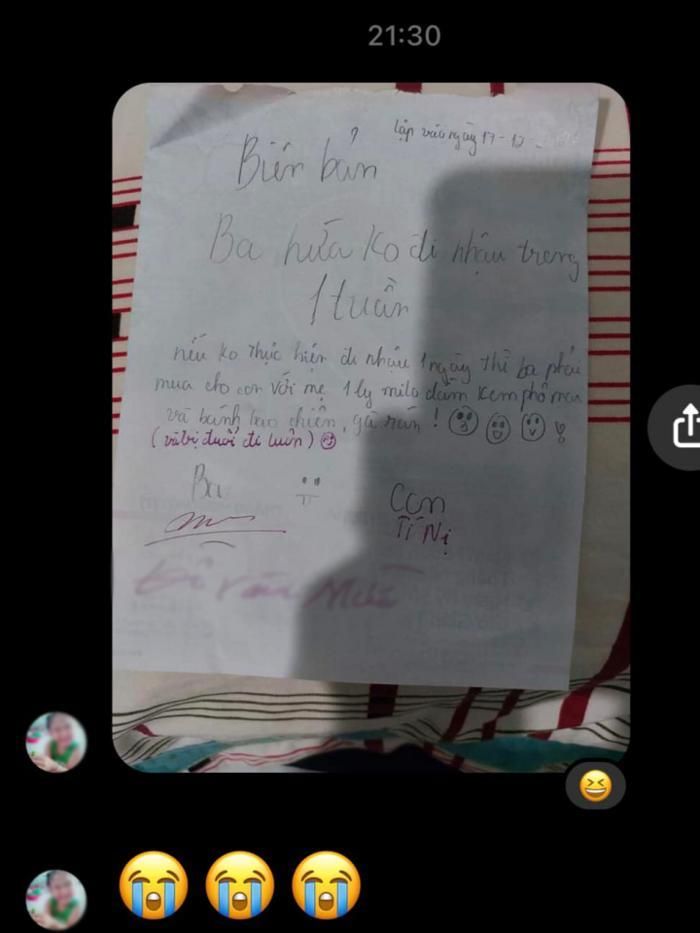 21:30
lập vào ngày 17-12-
Biên bản
Ba hứa ko đi nhậu trong
1 tuần
nếu ko thực hiện đi nhậu 1 ngày thì ba phải
mua cho con với mẹ 1 ly milo dầm kem phô mai
và bánh chiên, gà rán!
(và bị đuổi đi luôn)
Ba
Con
Tí Nị